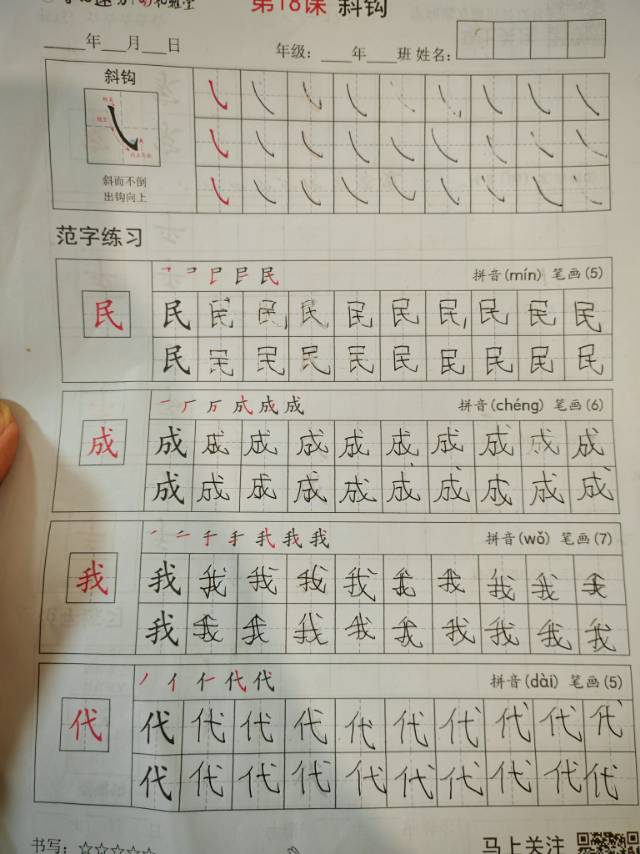 第18课 斜钩
____年___月___日 年级：____年___班 姓名：
斜钩
斜而不倒
出钩向上
范字练习
拼音(mín) 笔画(5)
民 民 民 民 民 民 民 民 民 民 民
民 民 民 民 民 民 民 民 民 民
拼音(chéng) 笔画(6)
成 成 成 成 成 成 成 成 成 成 成
成 成 成 成 成 成 成 成 成 成
拼音(wǒ) 笔画(7)
我 我 我 我 我 我 我 我 我 我 我
我 我 我 我 我 我 我 我 我 我
拼音(dài) 笔画(5)
代 代 代 代 代 代 代 代 代 代 代
代 代 代 代 代 代 代 代 代 代
书写：☆☆☆☆☆ 马上关注